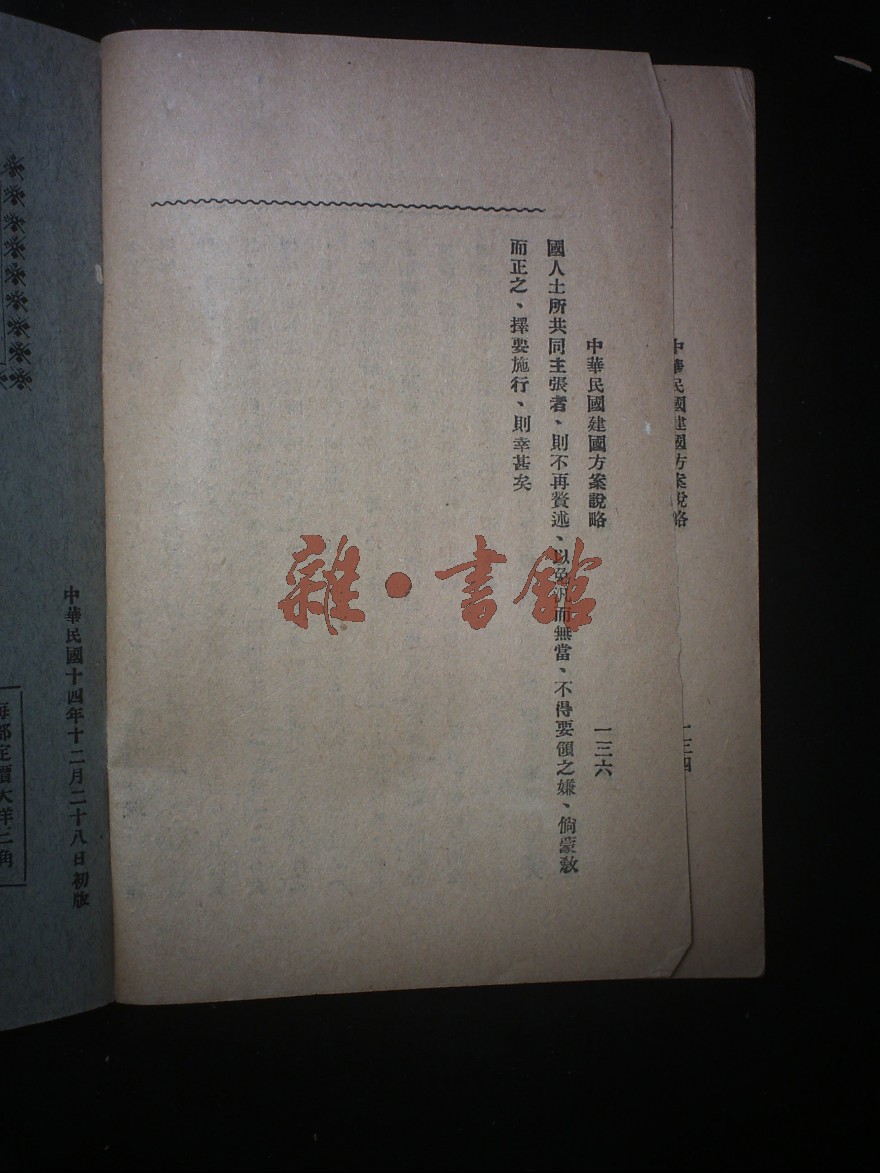 中華民國建國方案說略
一三四
中華民國建國方案說略
一三六
國人士所共同主張者、則不再贅述、以免汎而無當、不得要領之嫌、倘蒙敎
而正之、擇要施行、則幸甚矣
雜·書館
中華民國十四年十二月二十八日初版
每部定價大洋三角